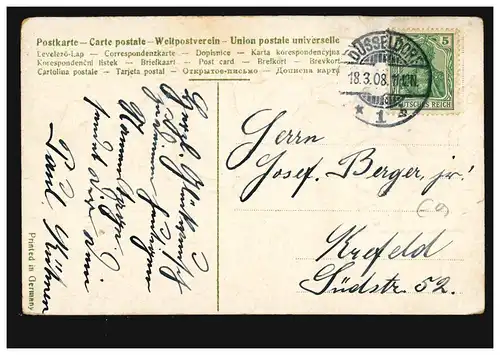 Postkarte – Carte postale – Weltpostverein – Union postale universelle
Levelező-Lap – Correspondenzkarte – Dopisnice – Karta korespondencyjna
Korespondenční lístek – Briefkaart – Post card – Brefkort – Brevkort
Cartolina postale – Tarjeta postal – Открытое-письмо – Дописна карта
DÜSSELDORF
18.3.08.
* 1
5
DEUTSCHES REICH
Herzl. Glückwunsch
zu
Namenstage
sendet Dir
Paul
Printed in Germany
Herrn
Josef. Berger, jr!
Krefeld
Südstr. 52.